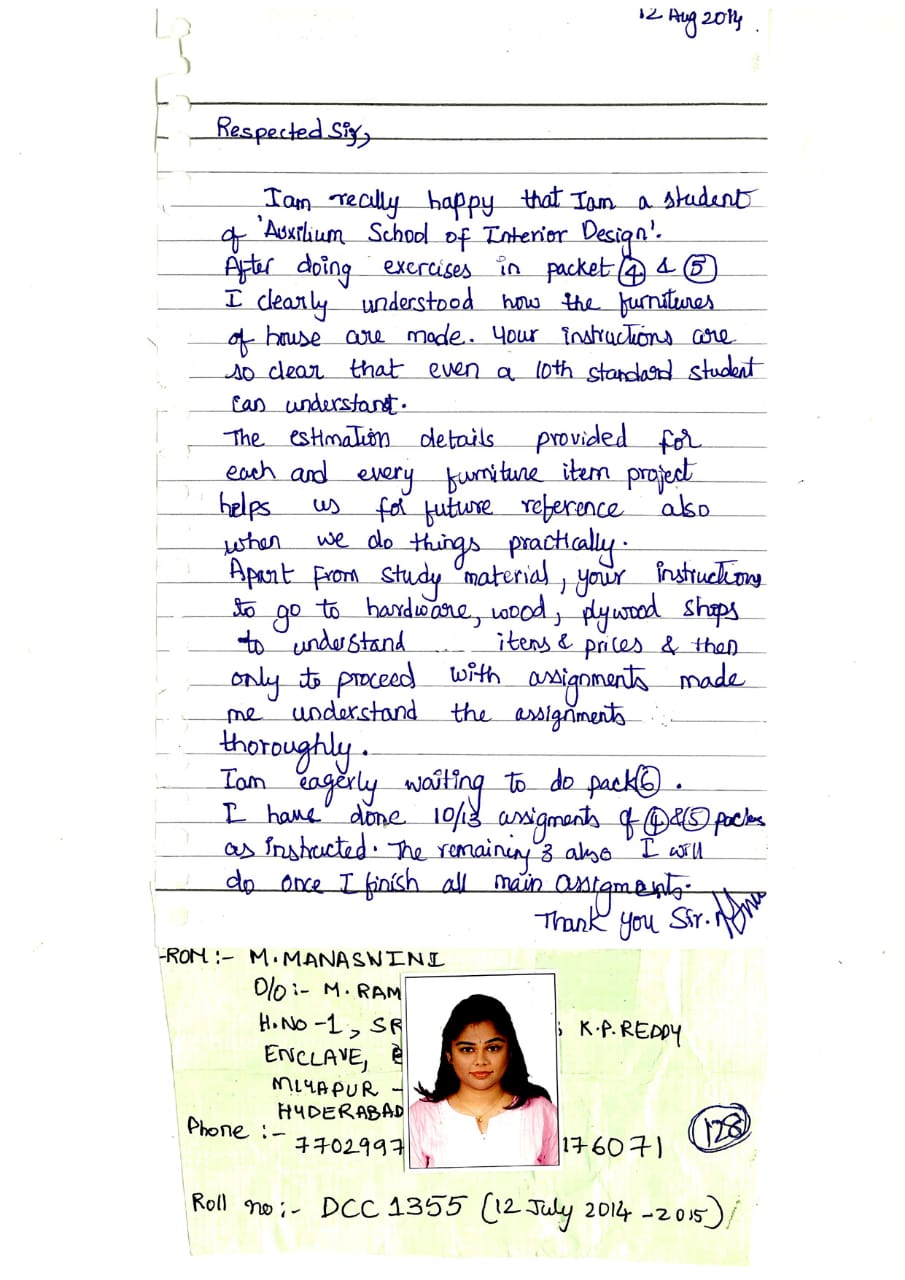 12 Aug 2014.
Respected Sir,
I am really happy that I am a student
of 'Auxilium School of Interior Design'.
After doing exercises in packet 4 & 5
I clearly understood how the furnitures
of house are made. Your instructions are
so clear that even a 10th standard student
can understant.
The estimation details provided for
each and every furniture item project
helps us for future reference also
when we do things practically.
Apart from study material, your instructions
to go to hardware, wood, plywood shops
to understand items & prices & then
only to proceed with assignments made
me understand the assignments
thoroughly.
I am eagerly waiting to do pack 6.
I have done 10/13 assigments of 4 & 5 packs
as instructed. The remaining 3 also I will
do once I finish all main assigments.
Thank you Sir.
-ROM :- M. MANASWINI
D/o :- M. RAM
H.NO -1, SR ; K.P. REDDY
ENCLAVE,
MIYAPUR -
HYDERABAD
Phone :-
7702997 176071
128
Roll no :- DCC 1355 (12 July 2014 - 2015)